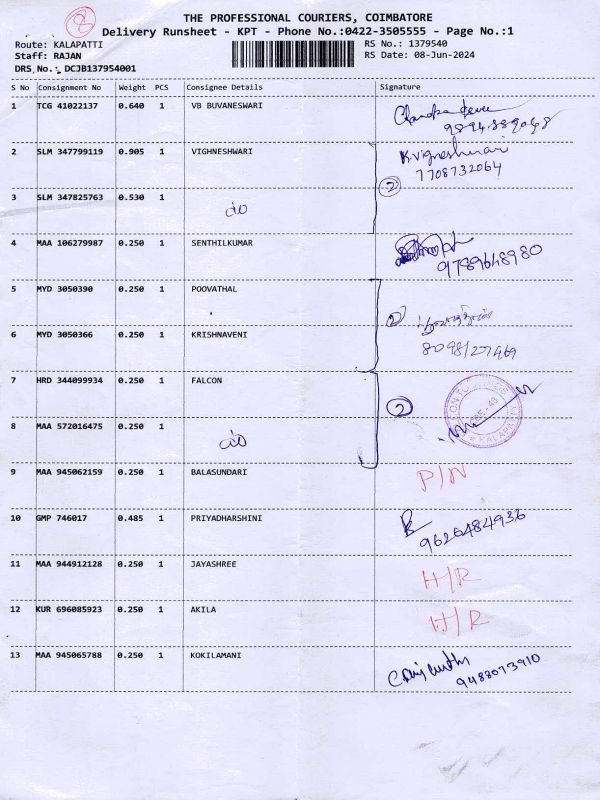 8
THE PROFESSIONAL COURIERS, COIMBATORE
Delivery Runsheet - KPT - Phone No.:0422-3505555 - Page No.:1
Route: KALAPATTI RS No.: 1379540
Staff: RAJAN RS Date: 08-Jun-2024
DRS No.: DCJB137954001
S No Consignment No Weight PCS Consignee Details Signature
1 TCG 41022137 0.640 1 VB BUVANESWARI
2 SLM 347799119 0.905 1 VIGHNESHWARI K.vigneshwari
7708732064
2
3 SLM 347825763 0.530 1
4 MAA 106279987 0.250 1 SENTHILKUMAR
9789648980
5 MYD 3050390 0.250 1 POOVATHAL
2
6 MYD 3050366 0.250 1 KRISHNAVENI
8098127469
7 HRD 344099934 0.250 1 FALCON
2
KALAPATTI
8 MAA 572016475 0.250 1
9 MAA 945062159 0.250 1 BALASUNDARI P/N
10 GMP 746017 0.485 1 PRIYADHARSHINI
9626484936
11 MAA 944912128 0.250 1 JAYASHREE H/R
12 KUR 696085923 0.250 1 AKILA H/R
13 MAA 945065788 0.250 1 KOKILAMANI
9488073910